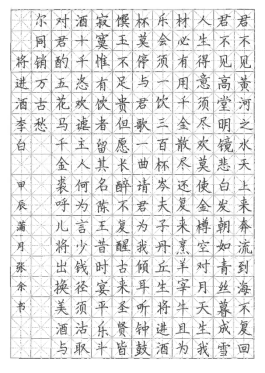 君不见黄河之水天上来奔流到海不复回
君不见高堂明镜悲白发朝如青丝暮成雪
人生得意须尽欢莫使金樽空对月天生我
材必有用千金散尽还复来烹羊宰牛且为
乐会须一饮三百杯岑夫子丹丘生将进酒
杯莫停与君歌一曲请君为我倾耳听钟鼓
馔玉不足贵但愿长醉不复醒古来圣贤皆
寂寞惟有饮者留其名陈王昔时宴平乐斗
酒十千恣欢谑主人何为言少钱径须沽取
对君酌五花马千金裘呼儿将出换美酒与
尔同销万古愁
将进酒李白 甲辰蒲月张余书